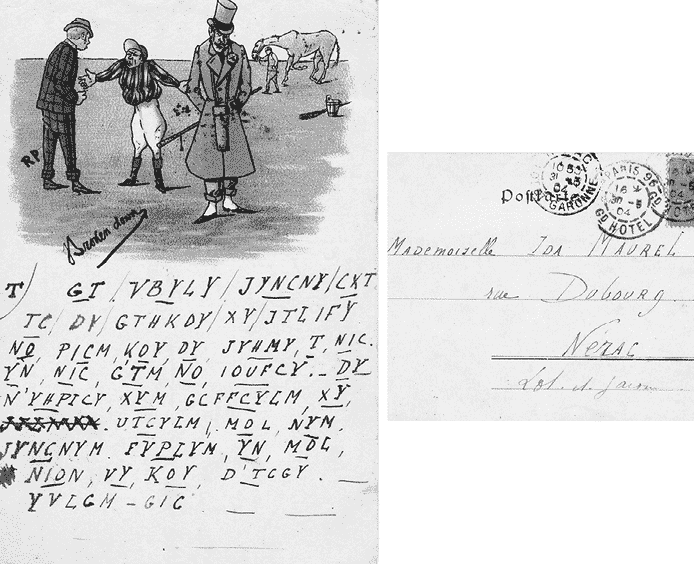 RP
Broken down
T) GT / VBYLY / JYNCNY / CXT
TC / DY / GTHKDY / XY / JTLIFY
NO, PICM, KOY DY JYHMY, T, NIC.
YN, NIC, G'TM, NO, IOUFCY. _ DY
N'YHPICY, XYM, GCFFCYLM, XY,
UTCYLM, MOL, NYM,
JYNCNYM. FYPLYM, YN, MOL,
NION, VY, KOY, D'TCGY. _
YVLGM - GIC
Postkarte
GARONNE
31 -3
04
PARIS 96
GD HOTEL
16
30 -3
04
Mademoiselle IDA MAUREL
rue Dubourg
Nérac
Lot et Garonne